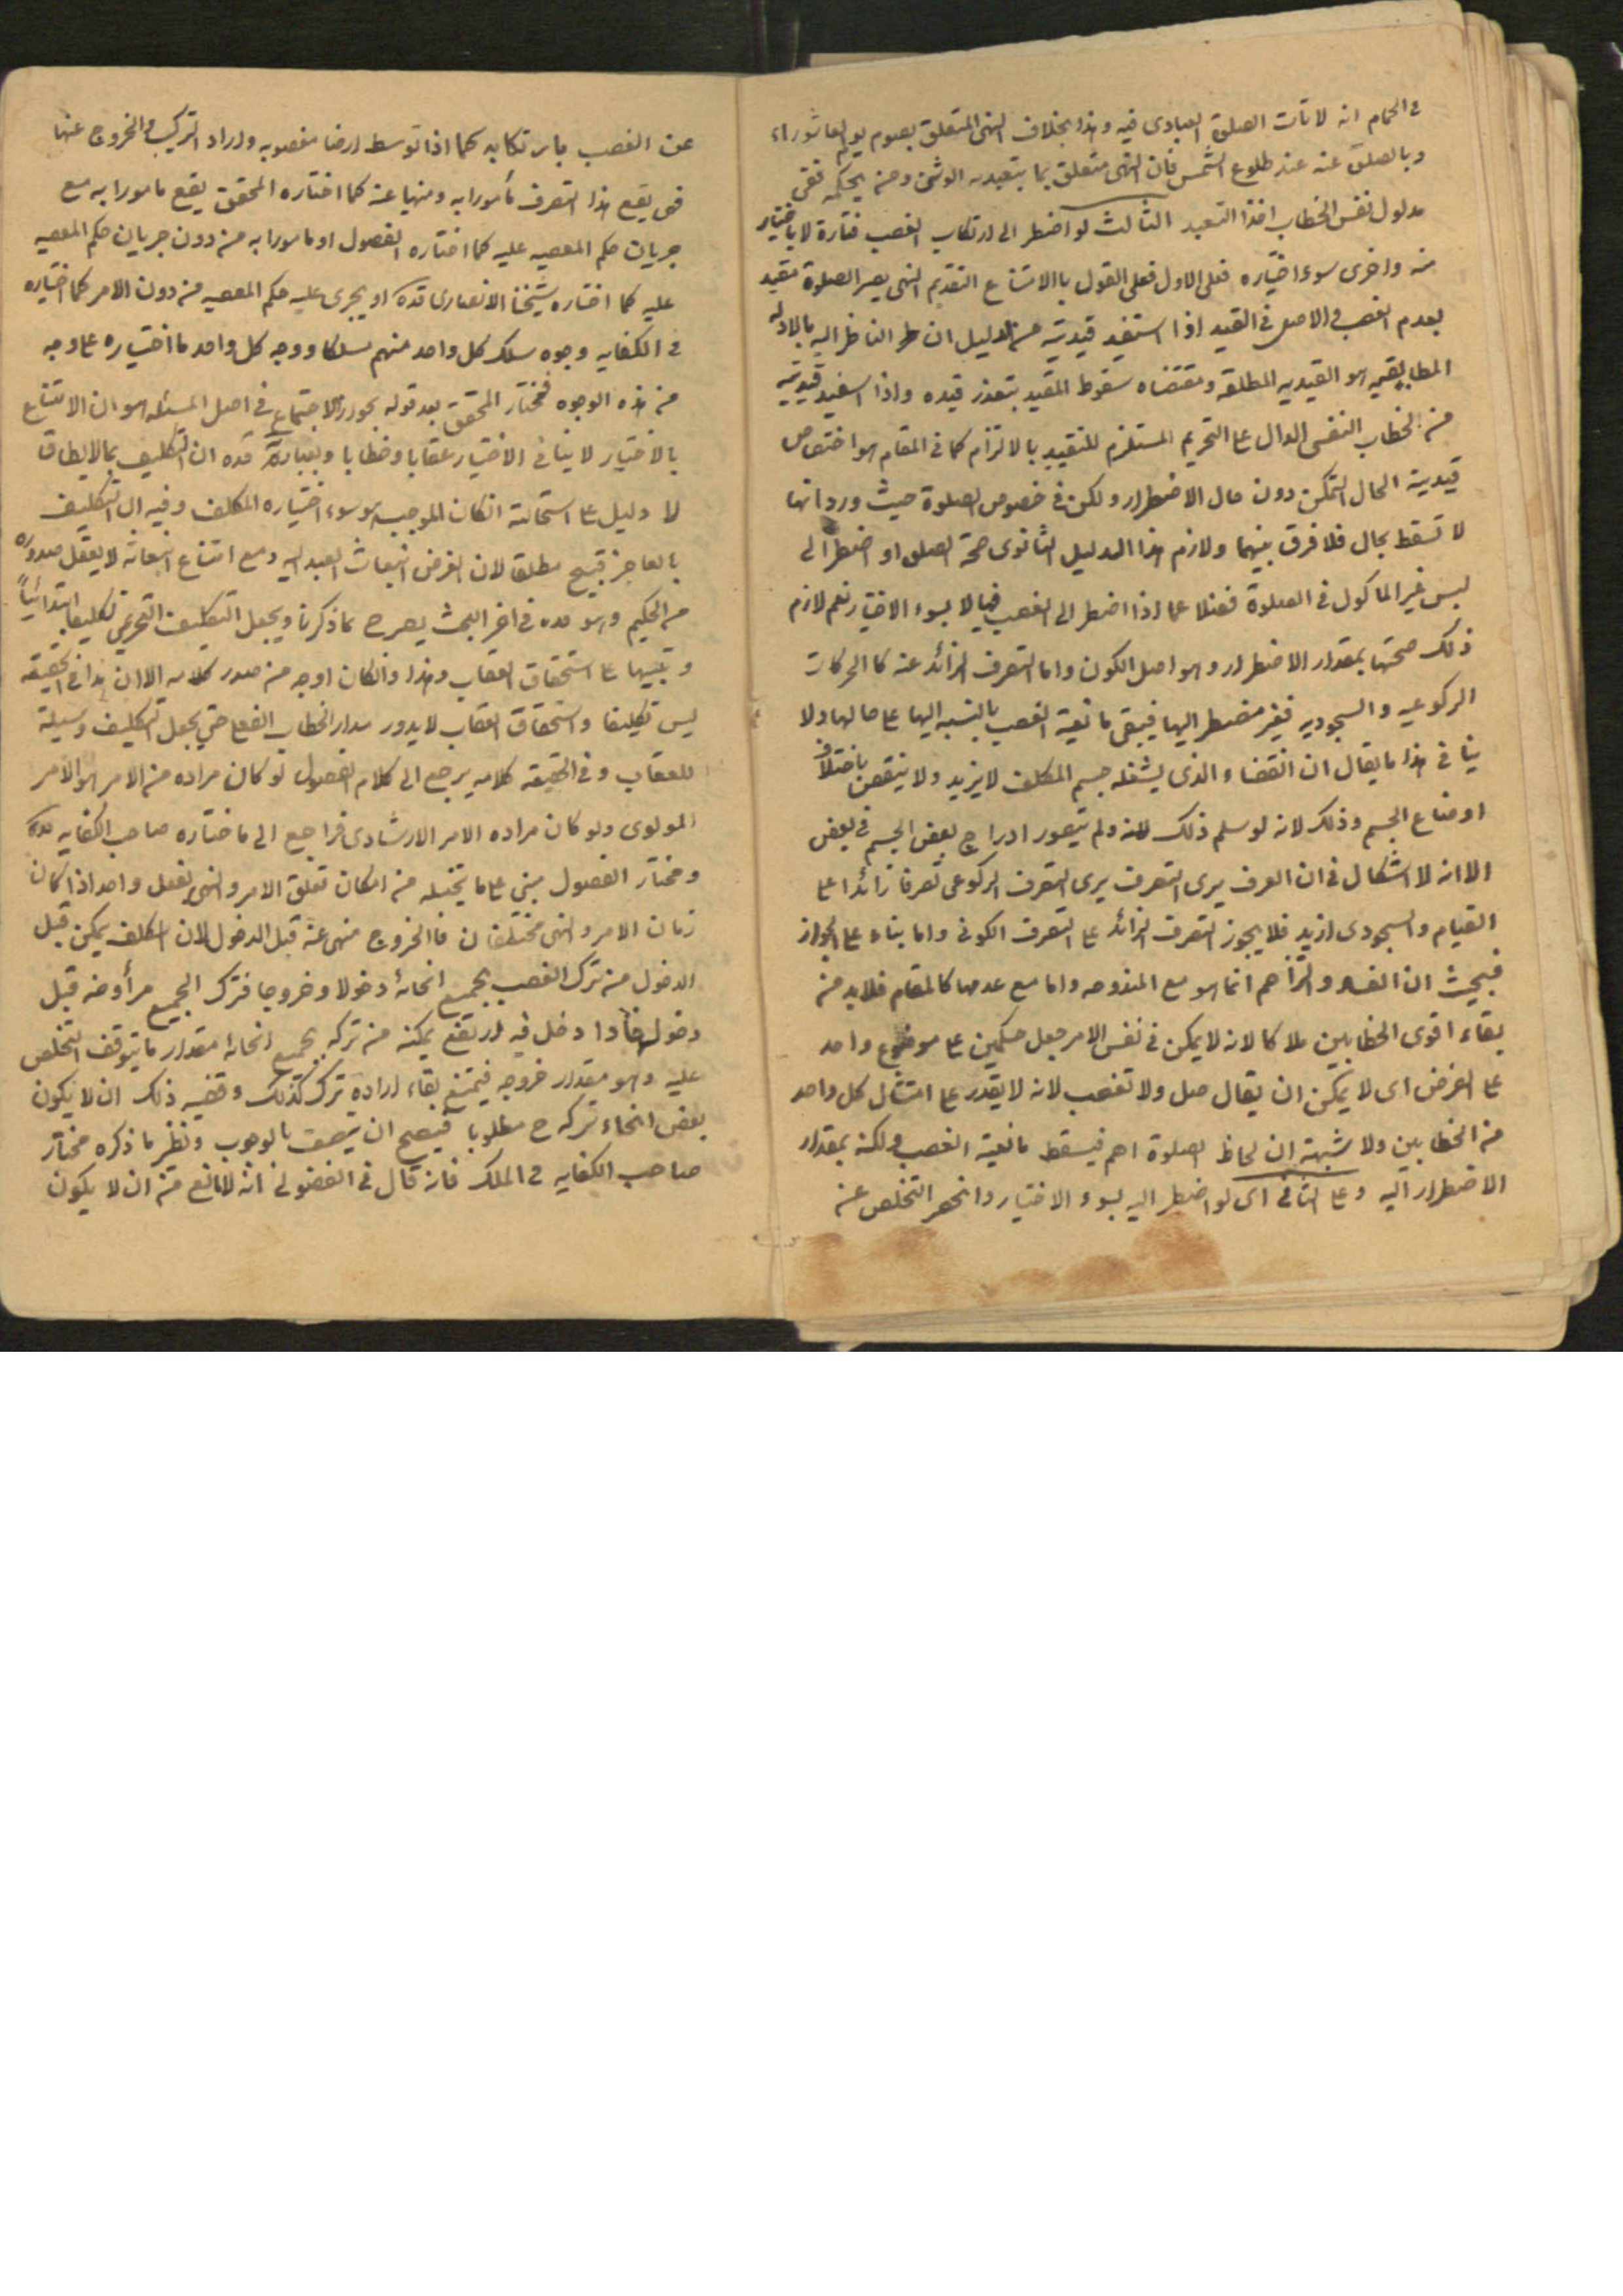 في الحمام انه لا تأت الصلوة العبادى فيه وهذا بخلاف النهى المتعلق بصوم يوم العاشوراء
وبالصلوة عنه عند طلوع الشمس فان النهى متعلق بما يتعبد به الوثنى ومن يحكمه ففى
مدلول نفس الخطاب اخذ التعبد الثالث لو اضطر الى ارتكاب الغصب فتارة لا باختيار
منه واخرى سوء اختياره فعلى الاول فعلى القول بالامتناع التقديم النهى يصير الصلوة مقيد
بعدم الغصب والاصل فى القيد اذا استفيد قيديته من الدليل ان الناظر اليه بالادلة
المطابقيه هو القيديه المطلقه ومقتضاه سقوط المقيد بتعذر قيده واذا استفيد قيديته
من الخطاب النفسى الدال على التحريم المستلزم للتقييد بالالتزام كما فى المقام هو اختصاص
قيدية الحال التمكن دون حال الاضطرار ولكن فى خصوص الصلوة حيث ورد انها
لا تسقط بحال فلا فرق بينهما ولازم هذا الدليل الثانوى صحة الصلوة لو اضطر الى
لبس غير الماكول فى الصلوة فضلا عما اذا اضطر الى الغصب فيها لا بسوء الاختيار نعم لازم
ذلك صحتها بمقدار الاضطرار وهو اصل الكون واما التصرف الزائد عنه كالحركات
الركوعيه والسجوديه فغير مضطر اليها فيبقى مانعية الغصب بالنسبه اليها على حالها ولا
ينافى هذا ما يقال ان الفضاء الذى يشغله جسم المكلف لا يزيد ولا ينقص باختلاف
اوضاع الجسم وذلك لانه لو سلم ذلك ولم يتصور ادراج بعض الجسم فى بعض
الا انه لا اشكال فى ان العرف يرى التصرف يرى التصرف الركوعى تصرفا زائدا على
القيام والسجودى ازيد فلا يجوز التصرف الزائد على التصرف الكونى واما بناء على الجواز
فبحيث ان التزاحم انما هو مع المندوحه واما مع عدمها كالمقام فلا بد من
بقاء اقوى الخطابين ملاكا لانه لا يمكن فى نفس الامر جعل حكمين على موضوع واحد
على الفرض اى لا يمكن ان يقال صل ولا تغصب لانه لا يقدر على امتثال كل واحد
من الخطابين ولا شبهة ان لحاظ الصلوة اهم فيسقط مانعية الغصب ولكنه بمقدار
الاضطرار اليه وعلى الثانى اى لو اضطر اليه بسوء الاختيار وانحصر التخلص عنه
عن الغصب بارتكابه كما اذا توسط ارضا مغصوبه واراد الترك والخروج عنها
فهى يقع هذا التصرف مأمورا به ومنهيا عنه كما اختاره المحقق يقع مامورا به مع
جريان حكم المعصيه عليه كما اختاره الفصول او مامورا به من دون جريان حكم المعصيه
عليه كما اختاره شيخنا الانصارى قده او يجرى عليه حكم المعصيه من دون الامر كما اختياره
فى الكفايه وجوه سلك كل واحد منهم مسلكا ووجه كل واحد ما اختياره على وجه
من هذه الوجوه فمختار المحقق بعد قوله بجواز الاجتماع فى اصل المسئله هو ان الامتناع
بالاختيار لا ينافى الاختيار عقابا وخطابا وبعبارة قده ان التكليف بما لا يطاق
لا دليل على استحالته اذ كان الموجب هو سوء اختياره المكلف وفيه ان التكليف
بالعاجز قبيح مطلقا لان الغرض انبعاث العبد اليه ومع امتناع انبعاثه لا يعقل صدوره
من الحكيم وهو قده فى اخر البحث يصرح بما ذكرنا ويجعل التكليف التحريمى تكليفا ابتدائيا
وتنبيها على استحقاق العقاب وهذا وان كان اوجه من صدر كلامه الا ان هذا فى الحقيقه
ليس تكليفا واستحقاق العقاب لا يدور مدار الخطاب الفعلى حتى يجعل التكليف وسيلة
للعقاب وفى الحقيقه كلامه يرجع الى كلام الفصول لو كان مراده من الامر هو الامر
المولوى ولو كان مراده الامر الارشادى فراجع الى ما ختاره صاحب الكفايه قده
ومختار الفصول مبنى على ما يتخيله من امكان تعلق الامر والنهى بفعل واحد اذا كان
زمان الامر والنهى مختلفان فالخروج منهى عنه قبل الدخول لان المكلف يمكن قبل
الدخول من ترك الغصب بجميع انحائه دخولا وخروجا فترك الجميع مراد منه قبل
دخوله فاذا دخل فيه ارتفع يمكنه من تركه بجميع انحائه مقدار ما يتوقف التخلص
عليه وهو مقدار خروجه فيمتنع بقاء ارادة ترك كذلك وقضيه ذلك ان لا يكون
بعض انحاء تركه ح مطلوبا فيصح ان يتصف بالوجوب ونظر ما ذكره مختار
صاحب الكفايه فى الملك فانه قال فى الفضولى انه لا مانع من ان لا يكون